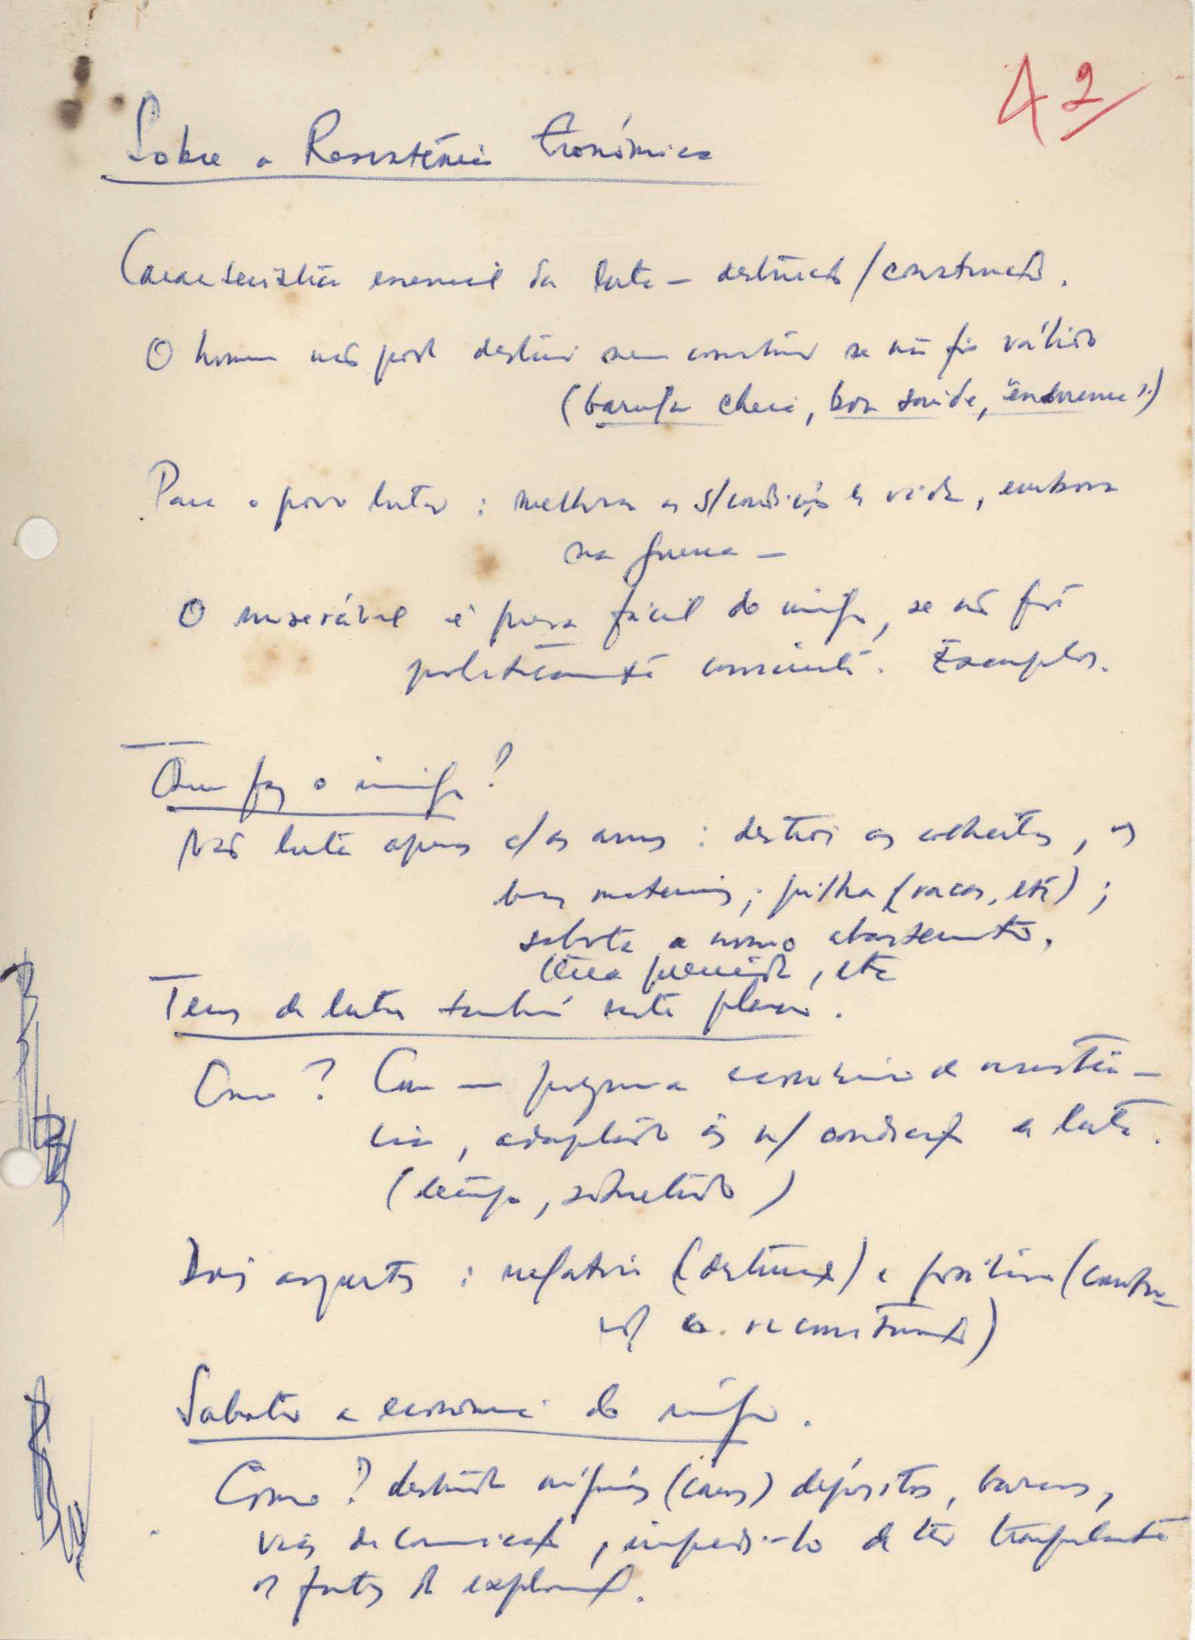 A 2
Sobre a Resistência Económica
Característica essencial da luta — destruição/construção.
O homem não pode destruir nem construir se não for válido
(barriga cheia, boa saúde,
Para o povo lutar: melhorar as s/condições de vida, embora
na guerra —
O miserável é presa fácil do inimigo, se não for
politicamente consciente. Exemplos.
Que faz o inimigo?
Não luta apenas c/as armas: destroi as colheitas, os
bens materiais; pilha (vacas, etc);
sabota o nosso abastecimento,
Cria penúria, etc
Temos de lutar também neste plano.
Como? Com um programa económico de resistên-
cia, adaptado às n/ condições de luta.
(tempo, sobretudo)
Dois aspectos: negativo (destruição) e positivo (constru-
ção e reconstrução)
Sabotar a economia do inimigo.
Como? destruindo depósitos, barcos,
vias de comunicação, impedi-lo de ter tranquilamente
as fontes de exploração.